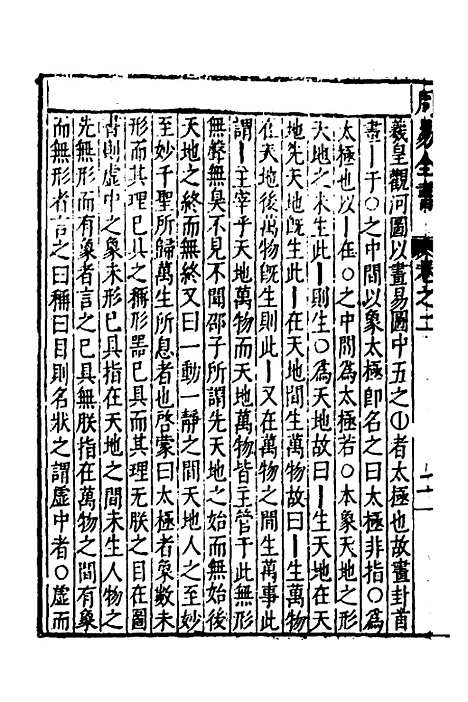 周易全書 卷之二 二
羲皇觀河圖以畫易圖中五之⦶者太極也故畫卦首
畫丨于○之中間以象太極卽名之曰太極非指○爲
太極也以丨在○之中間爲太極若○本象天地之形
天地之未生此丨則生○爲天地故曰丨生天地在天
地先天地旣生此丨在天地間生萬物故曰丨生萬物
在天地後萬物旣生則此丨又在萬物之間生萬事此
謂丨主宰乎天地萬物而天地萬物皆主管于此無形
無聲無臭不見不聞邵子所謂先天地之始而無始後
天地之終而無終又曰一動一靜之間天地人之至妙
至妙千聖所歸萬生所息者也啓蒙曰太極者象數未
形而其理已具之稱形器已具而其理无朕之目在圖
書則虛中之象未形已具指在天地之間未生人物之
先無形而有象者言之已具無朕指在萬物之間有象
而無形者言之曰稱曰目則名狀之謂虛中者○虛而